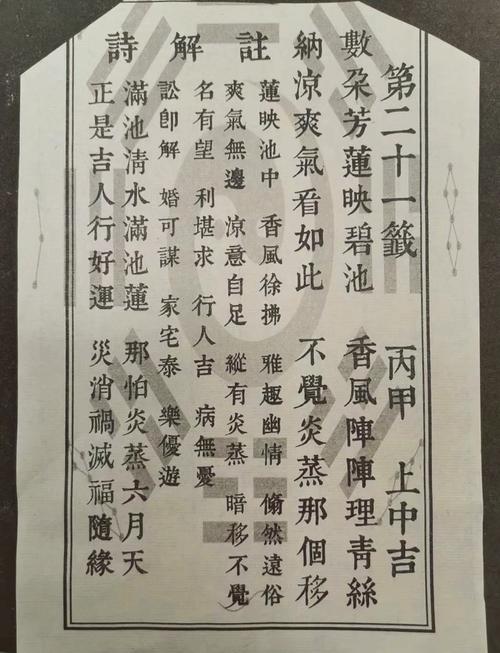 第二十一籤 丙甲 上中吉
數朵芳蓮映碧池 香風陣陣理青絲
納涼爽氣看如此 不覺炎蒸那個移
註 蓮映池中 香風徐拂 雅趣幽情 翛然遠俗
爽氣無邊 涼意自足 縱有炎蒸 暗移不覺
解 名有望 利堪求 行人吉 病無憂
訟即解 婚可謀 家宅泰 樂優遊
詩 滿池清水滿池蓮 那怕炎蒸六月天
正是吉人行好運 災消禍滅福隨緣